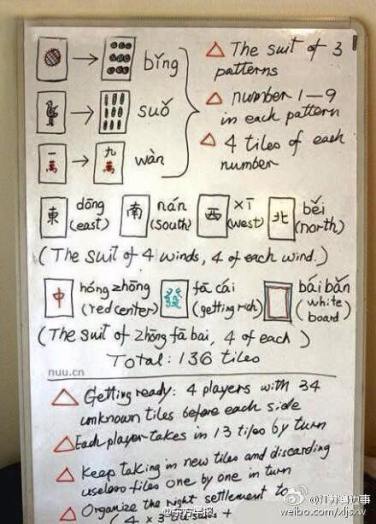 → bǐng
→ suǒ
一萬 → 九萬 wàn
△ The suit of 3
patterns
△ number 1-9
in each pattern
△ 4 tiles of each
number
東 dōng (east) 南 nán (south) 西 xī (west) 北 běi (north)
(The suit of 4 winds, 4 of each wind.)
中 hóng zhōng (red center) 發 fā cái (getting rich) bái bǎn (white board)
(The suit of zhōng fā bai, 4 of each)
Total: 136 tiles
nuu.cn
△ Getting ready: 4 players with 34
unknown tiles before each side
△ Each player takes in 13 tiles by turn
△ Keep taking in new tiles and discarding
useless tiles one by one in turn
△ Organize the right settlement to
4 × 3 +
weibo.com/ljsxw